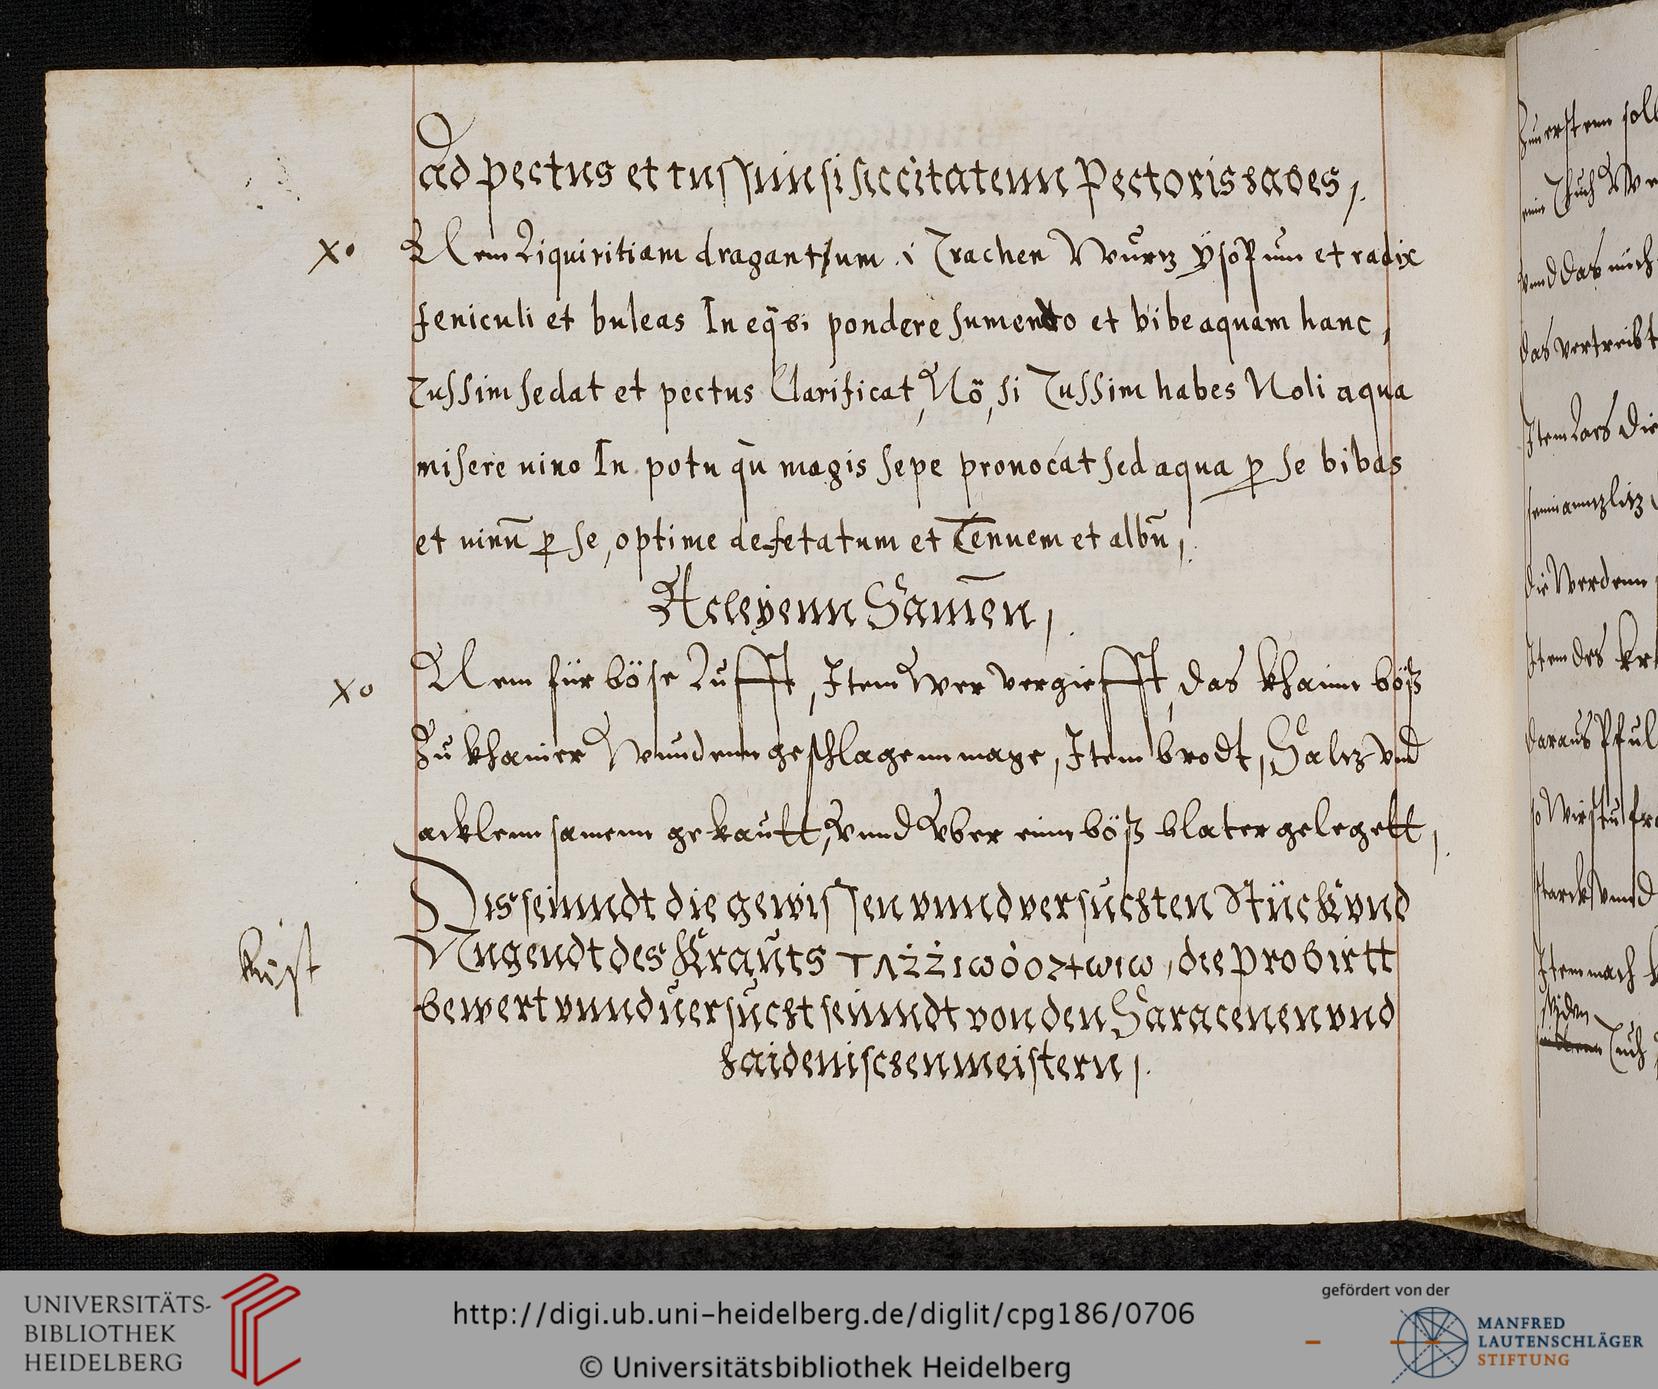 Ad pectus et tussim si siccitatem Pectoris habes,
xo Nem Liquiritiam dragantum .i. Trachen Wurtz ÿsopum et radix
feniculi et buleas In eq̈si pondere sumendo et bibe aquam hanc,
Tussim sedat et pectus Clarificat, Nö, si Tussim habes Noli aqua
misere vino In potu qù magis sepe prouocat sed aqua p se bibas
et vinū p se, optime defetatum et Tenuem et albū,
Acleyenn Samen,
xo Nem für böse Lufft, Item Wer vergiefft, das khainn böß
Zu khainer Wundenn geschlagenn mage, Item brodt, Saltz vnd
acklenn samenn gekautt, vnnd vber einn böß blater gelegett,
Dis seinndt die gewissen vnnd versuchten Stück vnd
Tugendt des Krauts , die probirtt
bewert vnnd versucht seinndt von den Saracenen vnd
haidenischen meistern,
Zuerst ein soll
ein Thuch
vnnd das mich
das vertreibt
Item
die Werdenn
Item des
daraus
so Wirstu
starck vnnd
Item mach
Tuch
UNIVERSITÄTS-
BIBLIOTHEK
HEIDELBERG
http://digi.ub.uni-heidelberg.de/diglit/cpg186/0706
© Universitätsbibliothek Heidelberg
gefördert von der
MANFRED
LAUTENSCHLÄGER
STIFTUNG